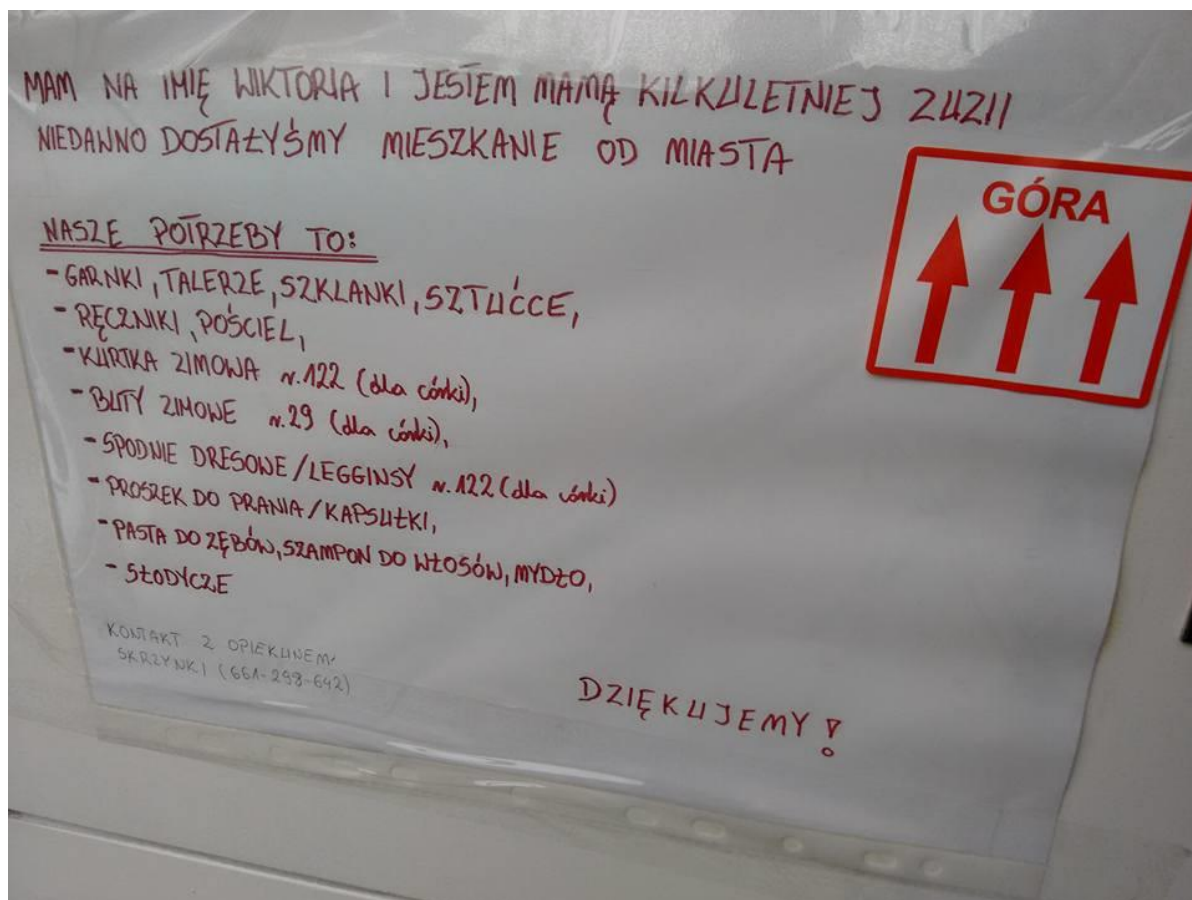 MAM NA IMIĘ WIKTORIA I JESTEM MAMĄ KILKULETNIEJ ZUZII
NIEDAWNO DOSTAŁYŚMY MIESZKANIE OD MIASTA
GÓRA
NASZE POTRZEBY TO:
- GARNKI, TALERZE, SZKLANKI, SZTUĆCE,
- RĘCZNIKI, POŚCIEL,
- KURTKA ZIMOWA n.122 (dla córki),
- BUTY ZIMOWE n.29 (dla córki),
- SPODNIE DRESOWE/LEGGINSY n.122 (dla córki)
- PROSZEK DO PRANIA/KAPSUŁKI,
- PASTA DO ZĘBÓW, SZAMPON DO WŁOSÓW, MYDŁO,
- SŁODYCZE
KONTAKT Z OPIEKUNEM
SKRZYNKI (661-298-642)
DZIĘKUJEMY!